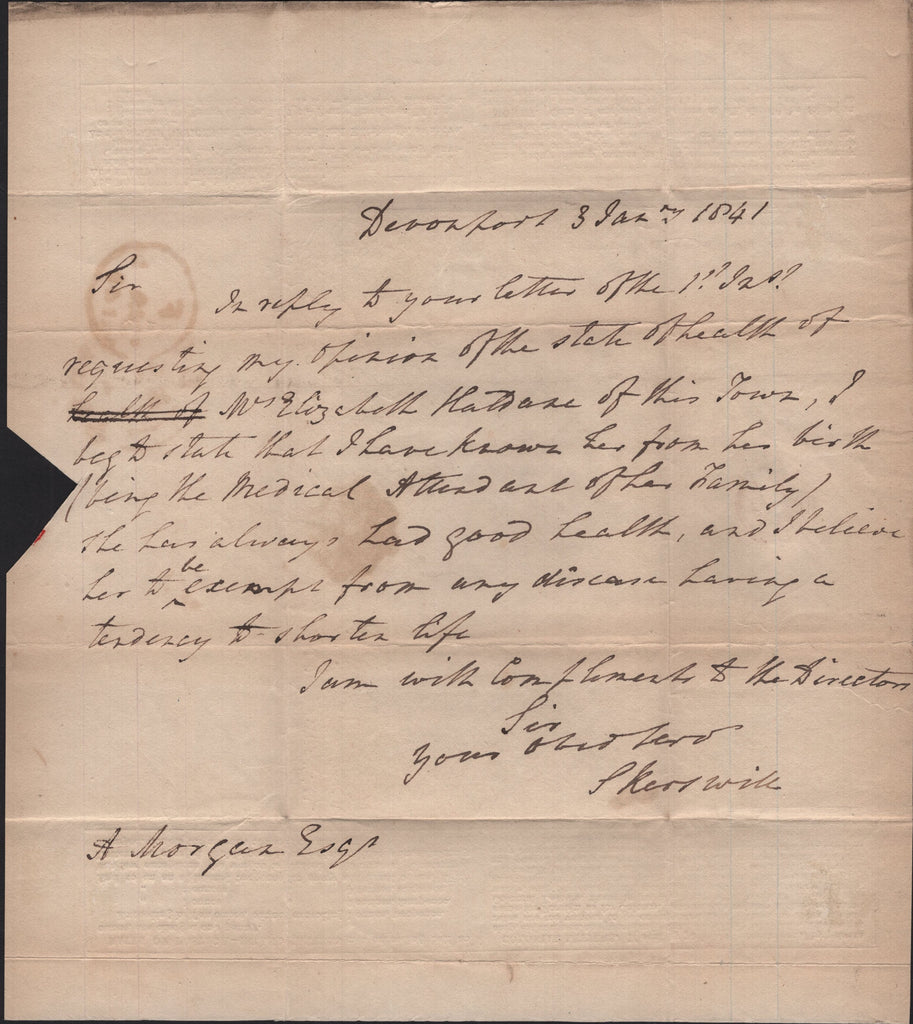 Devonport 3 Jany 1841
Sir
In reply to your letter of the 1st Inst
requesting my opinion of the state of health of
health of Mrs Elizabeth Haldane of this Town, I
beg to state that I have known her from her birth
(being the Medical Attendant of her Family)
she has always had good health, and I believe
her to be exempt from any disease having a
tendency to shorten life
I am with Compliments to the Directors
Sir
your obed serv
S Kerswill
A Morgan Esqr